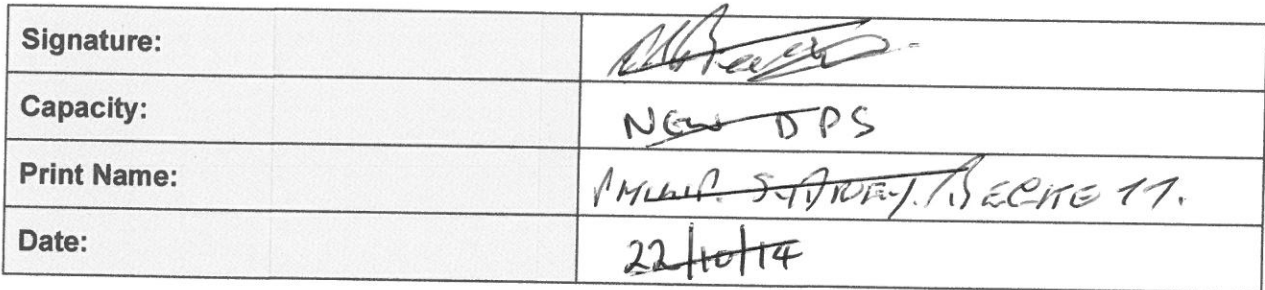 Signature:
Capacity: NEW DPS
Print Name: PHILLIP SYDNEY BECKETT.
Date: 22/10/14